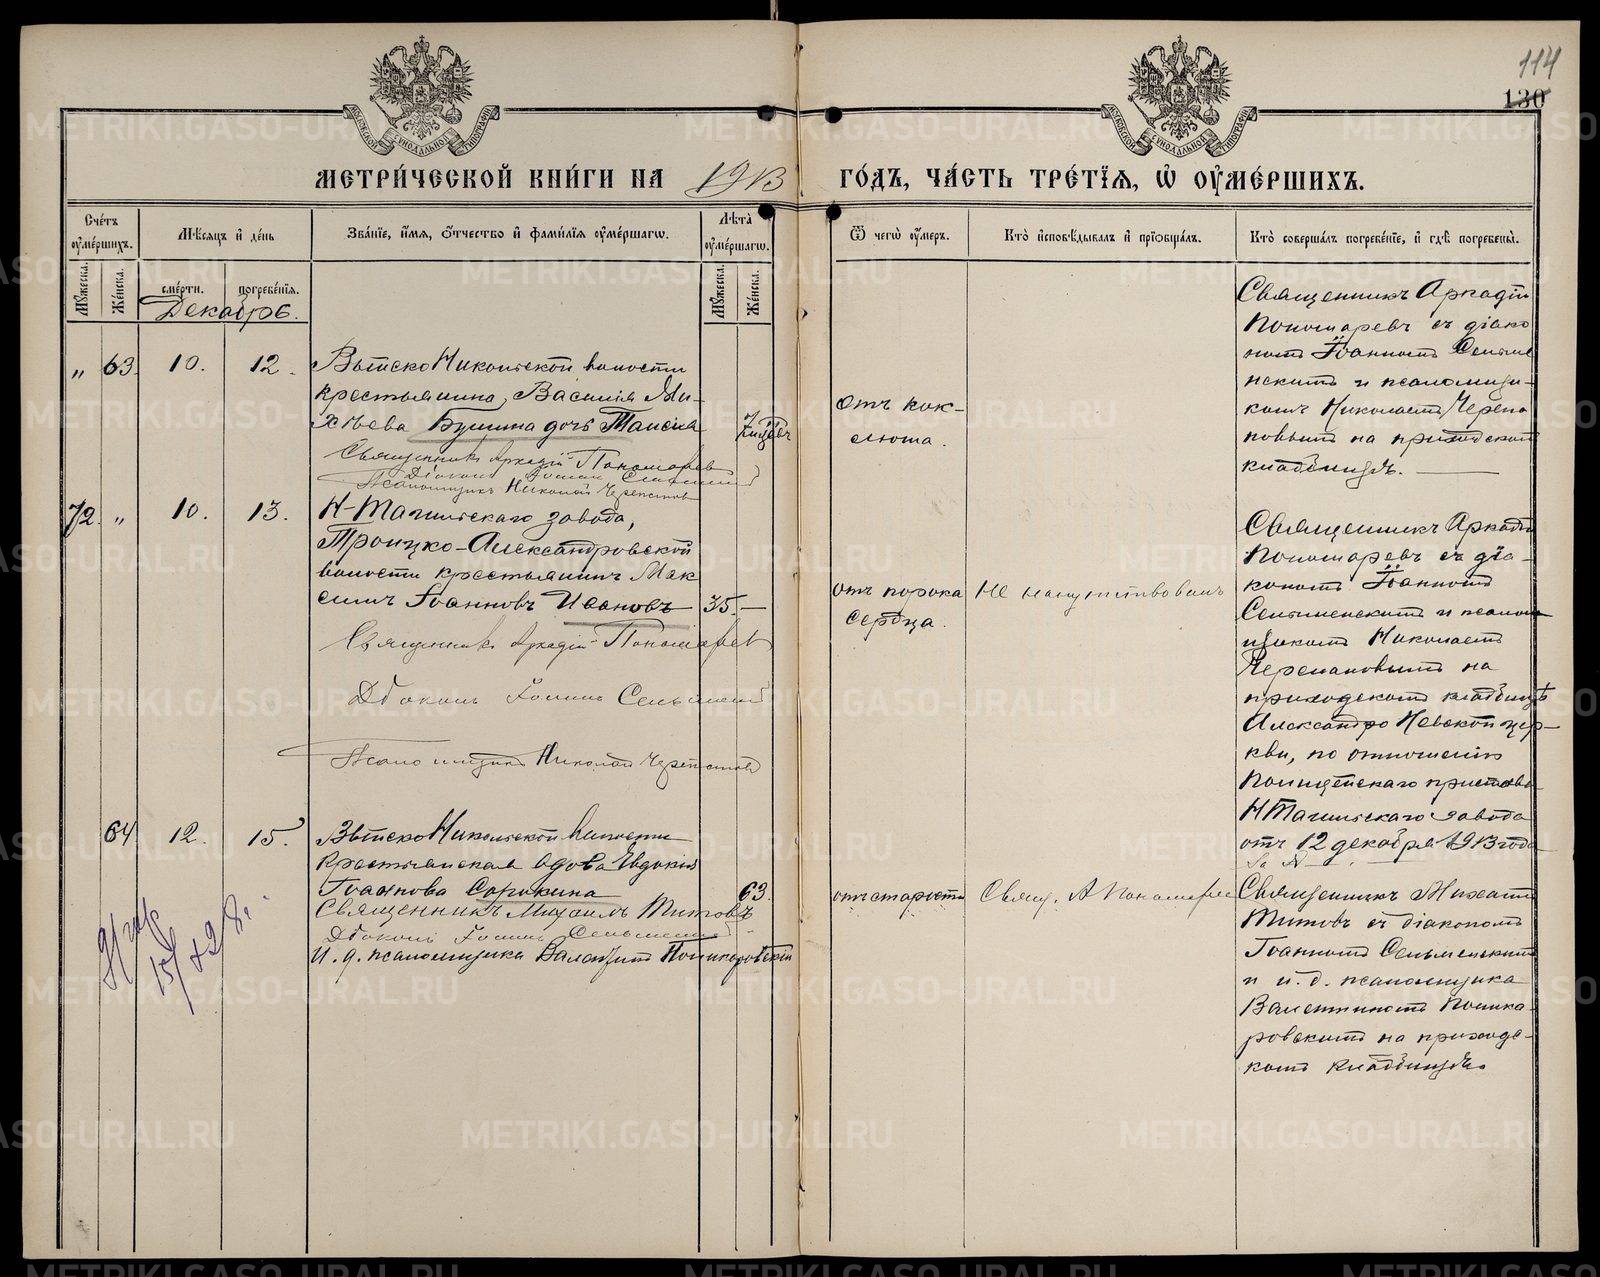 114
130
МЕТРИ́ЧЕСКОЙ КНИ́ГИ НА 1913 ГО́ДЪ, ЧА́СТЬ ТРЕ́ТЇѦ, Ѡ ОУМЕ́РШИХЪ.
Сче́тъ оумершихъ.
Мѣсяцъ и день
Зва́нїе, и́мя, о́тчество и фами́лїя оуме́ршагѡ.
Лѣта̀ оуме́ршагѡ.
Ѿ чегѡ̀ оу́меръ.
Кто̀ исповѣ́дывалъ и прїѡбща́лъ.
Кто̀ соверша́лъ погребе́нїе, и гдѣ̀ погребены̀.
Мужеска.
Женска.
смерти.
погребенїя.
Мужеска.
Женска.
Декабрь.
„ 63. 10. 12.
Выйско Никольской волости
крестьянина, Василія Ми-
хѣева Бушина дочь Таисія
Священникъ Аркадій Пономаревъ
Діаконъ Іоаннъ Сельменскій
Псаломщикъ Николай Черепановъ
отъ кок-
люша.
Священникъ Аркадій
Пономаревъ съ діако
номъ Іоанномъ Сельме
нскимъ и псаломщи-
комъ Николаемъ Черепа
новымъ на приходскомъ
кладбищѣ.
72. „ 10. 13.
Н-Тагильскаго завода,
Троицко-Александровской
волости крестьянинъ Мак
симъ Іоанновъ Ивановъ 35.
Священникъ Аркадій Пономаревъ
Діаконъ Іоаннъ Сельменскій
Псаломщикъ Николай Черепановъ
отъ порока
сердца.
Не напутствованъ
Священникъ Аркадій
Пономаревъ съ діа-
кономъ Іоанномъ
Сельменскимъ и псалом
щикомъ Николаемъ
Черепановымъ на
приходскомъ кладбищѣ
Александро Невской цер-
кви, по отношенію
Полицейскаго пристава
Н Тагильскаго завода
отъ 12 декабря 1913 года
за №
64 12. 15.
Выйско Никольской волости
крестьянская вдова Евдокія
Іоаннова Сорокина 63.
Священникъ Михаилъ Титовъ
Діаконъ Іоаннъ Сельменскій
И. д. псаломщика Валентинъ Поликаровскій
отъ старости
Свящ. А Пономаревъ
Священникъ Михаилъ
Титовъ съ діакономъ
Іоанномъ Сельменскимъ
и и. д. псаломщика
Валентиномъ Полика-
ровскимъ на приход-
скомъ кладбищѣ.
METRIKI.GASO-URAL.RU